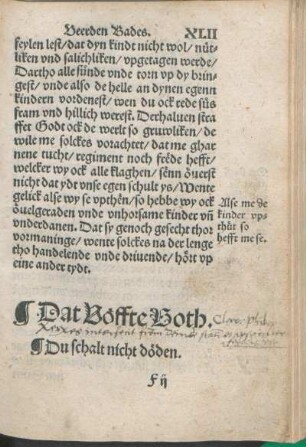 Veerden Bades. XLII
feylen lest/ dat dyn kindt nicht wol/ nüt⸗
liken vnd salichliken/ vpgetagen werde/
Dartho alle sünde vnde torn vp dy brin⸗
gest/ vnde also de helle an dynen egenn
kindern vordenest/ wen du ock rede süs
fram vnd hillich werest. Derhaluen stra
ffet Godt ock de werlt so gruwliken/ de
wile me solckes vorachtet/ dat me ghar
nene tucht/ regiment noch frede hefft/
welcker wy ock alle klaghen/ sünn öuerst
nicht dat ydt vnse egen schult ys/ Wente
gelick alse wy se vpthën/ so hebbe wy ock
öuelgeraden vnde vnhorsame kinder vñ
vnderdanen. Dat sy genoch gesecht thor
vormaninge/ wente solckes na der lenge
tho handelende vnde driuende/ hört vp
eine ander tydt.
Alse me de
kinder vp⸗
thüt so
hefft me se.
¶ Dat Vöffte Both.
¶ Du schalt nicht döden.
F ij